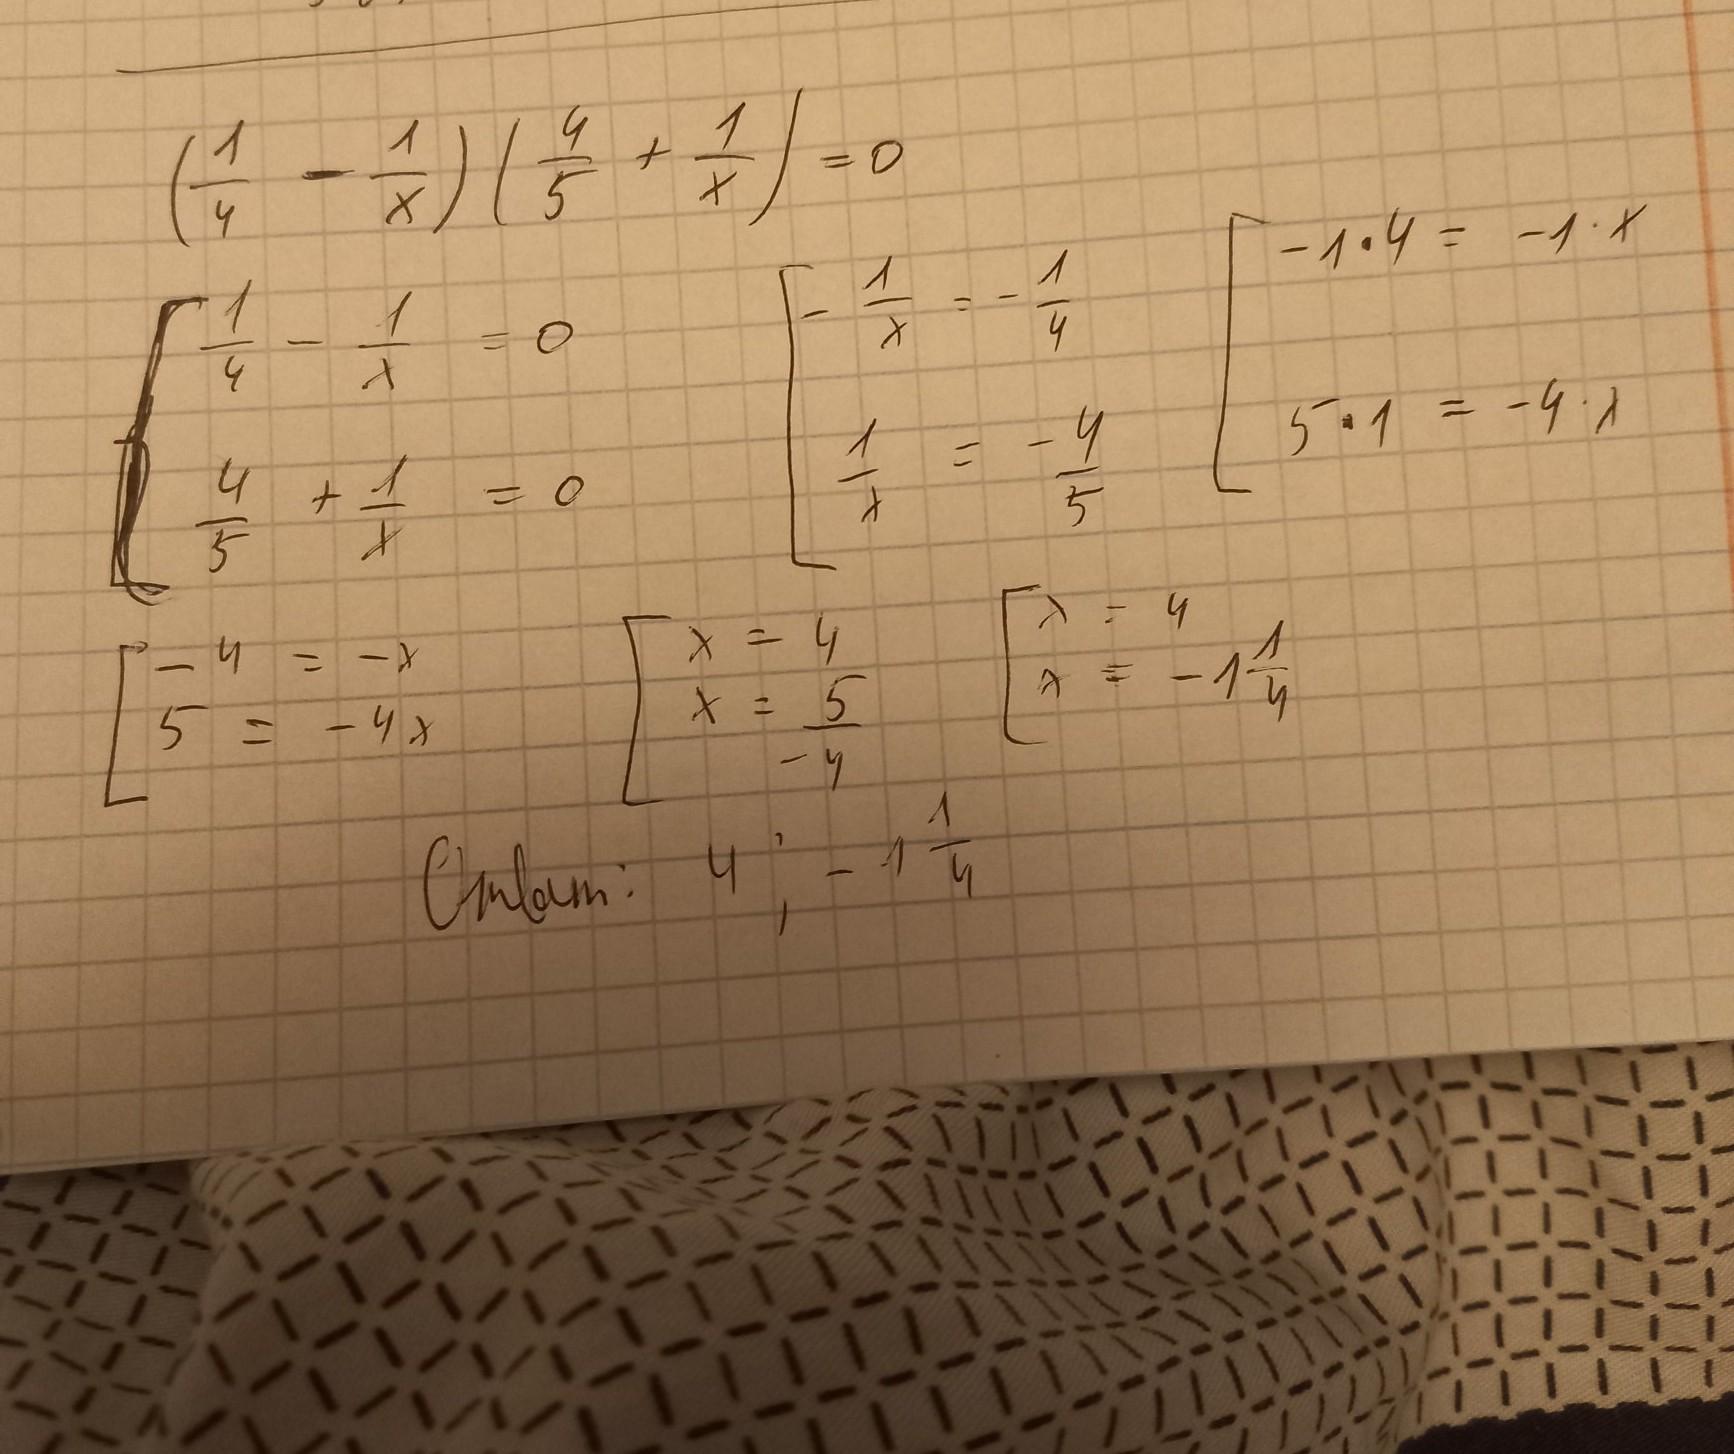 (1/4 - 1/x)(4/5 + 1/x) = 0
[ 1/4 - 1/x = 0
4/5 + 1/x = 0
[ - 1/x = - 1/4
1/x = -4/5
[ -1·4 = -1·x
5·1 = -4·x
[ -4 = -x
5 = -4x
[ x = 4
x = 5/-4
[ x = 4
x = -1 1/4
Ответ: 4 ; -1 1/4